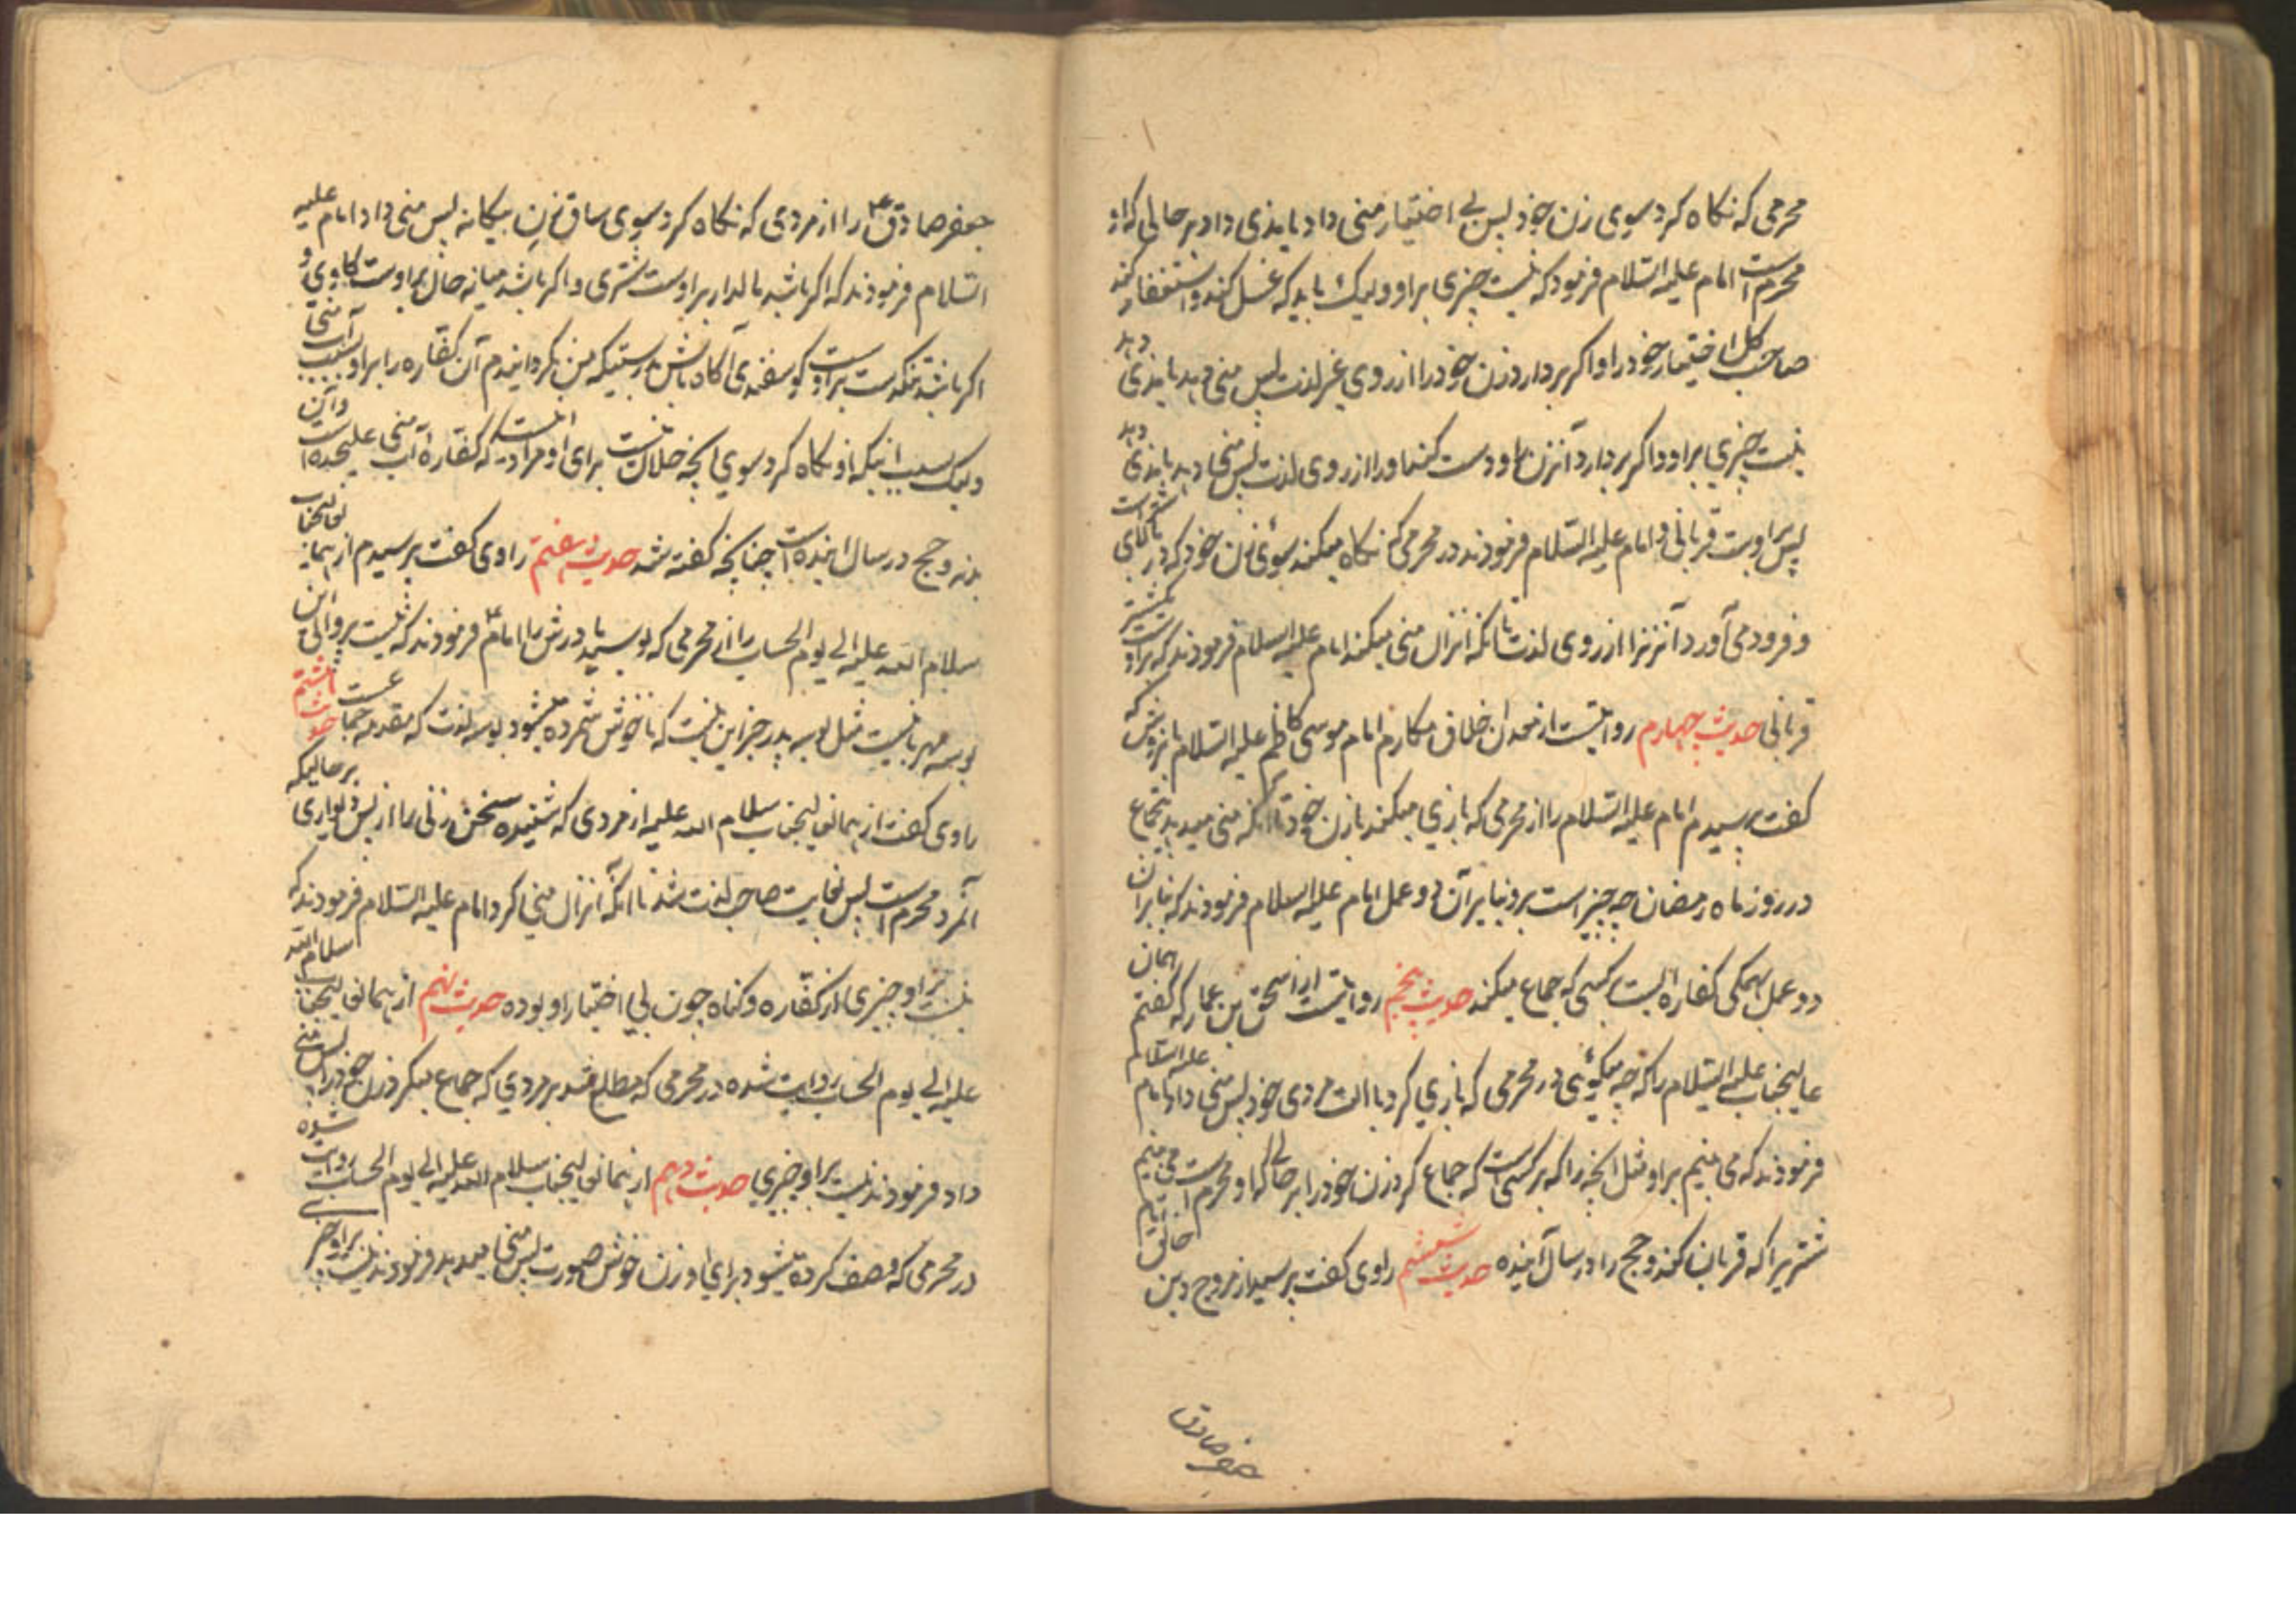 محرمی که نکاه کرد سوی زن خود پس بی اختیار منی داد یا مذی داد بر حالی که او
محرم است امام علیه السلام فرمود که نیست چیزی براو ولیک باید که غسل کند و استغفار کند
صاحب کل اختیار خود را و اکر بردارد زن خود را از روی غیر لذت پس منی دهد یا مذی دهد
نیست چیزی براو و اکر بردارد آنزن را و دست کند اورا از روی لذت پس منی دهد یا مذی دهد
پس براوست قربانی و امام علیه السلام فرمودند در محرمی که نکاه میکند سوئی زن خود که در
و فرود می آورد آنزنرا از روی لذت تا آنکه انزال منی میکند امام علیه السلام فرمودند که براوست شتر
قربانی حدیث چهارم روایتست از معدن اخلاق مکارم امام موسی کاظم علیه السلام که
کفت پرسیدم امام علیه السلام را از محرمی که بازی میکند با زن خود تا آنکه منی میدهد بی جماع
در روز ماه رمضان چه چیز است برو بنا بر آن دو عمل امام علیه السلام فرمودند که بنا بر آن
دو عمل همکی کفاره است بر کسی که جماع میکند حدیث پنجم روایتست از اسحق بن عمار که کفتم
عالیجناب علیه السلام را که چه میکوئی در محرمی که بازی کرد با الت مردی خود پس منی داد امام علیه السلام
فرمودند که می بینم براو مثل آنچه را که بر کسی است که جماع کرد زن خود را بر حالی که او محرم است می بینم
شتریرا که قربان کند و حج را در سال آینده حدیث ششم راوی کفت پرسیدم از مروج دین
جعفر صادق
جعفر صادق ع را از مردی که نکاه کرد سوی ساق زن بیکانه پس منی داد امام علیه
السلام فرمودند که اکر باشد مالدار براوست شتری و اکر باشد میانه حال براوست کاوی و
اکر باشد تنکدست براوست کوسفندی آکاه باش بدرستیکه من نکردانیدم آن کفاره را براو بسبب آب منی
ولیک بسبب اینکه او نکاه کرد سوی آنچه حلال نیست برای او مراد اینست که کفارهٔ آب منی علیحده است و آن
بدنه و حج در سال آینده است چنانچه کفته شد حدیث هفتم راوی کفت پرسیدم از همان عالیجناب
سلام الله علیه الی یوم الحساب را از محرمی که بوسید مادرش را امام ع فرمودند که نیست پروائی این
بوسه مهربانیست مثل بوسه پدر جز این نیست که ناخوش شمرده میشود بوسه لذت که مقدمه جماعست حدیث هشتم
راوی کفت از همان عالیجناب سلام الله علیه از مردی که شنیده سخن زنی را از پس دیواری بر حالیکه
آنمرد محرم است پس نهایت صاحب لذت شد تا آنکه انزال منی کرد امام علیه السلام فرمودند که
نیست براو چیزی از کفاره و کناه چون بی اختیار او بوده حدیث نهم از همان عالیجناب سلام الله
علیه الی یوم الحساب روایت شده در محرمی که مطلع شد بر مردی که جماع میکرد زن خود را پس منی
داد فرمودند نیست براو چیزی حدیث دهم از همان عالیجناب سلام الله علیه الی یوم الحساب روایت شده
در محرمی که وصف کرده میشود برای او زن خوش صورت پس منی میدهد فرمودند نیست براو چیزی